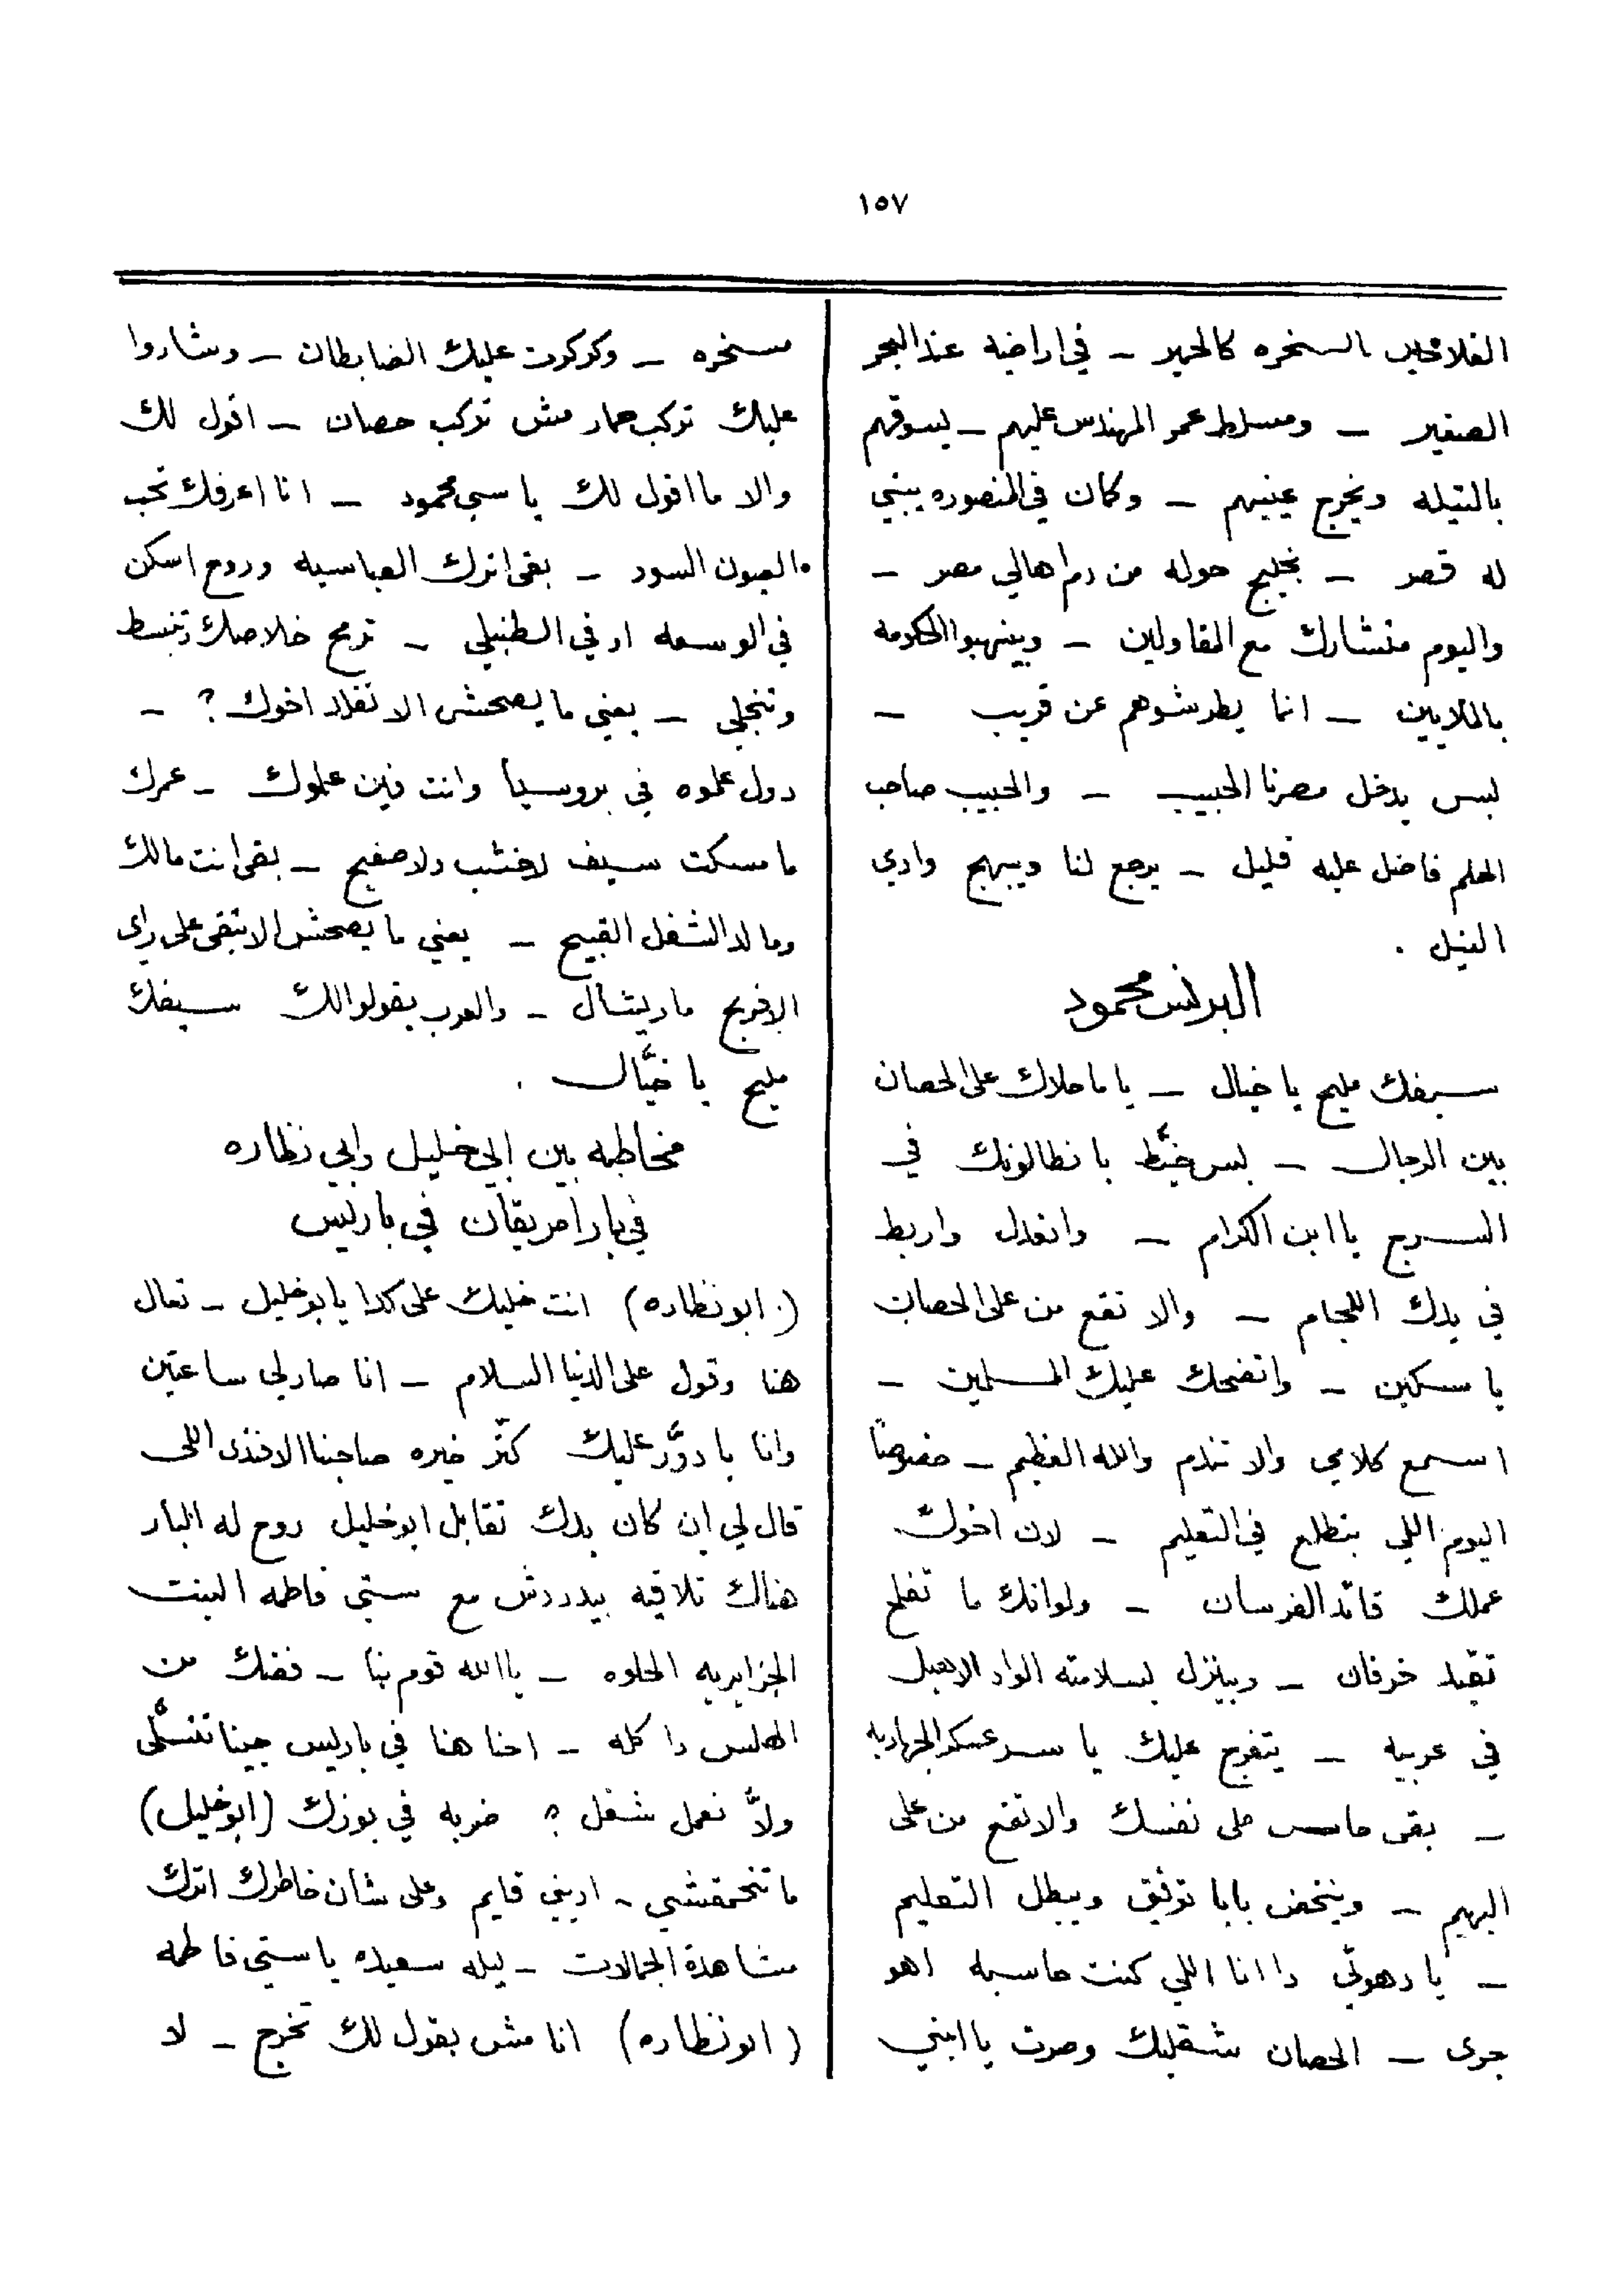 ١٥٧
الفلاحين بالسخره كالحمير — في اراضيه عند البحر
الصغير — ومسلط عمر المهندس عليهم — ليسوقهم
بالتيله ويخرج عينيهم — وكان في المنصوره يبني
له قصر — بخليج حوله من دم اهالي مصر —
واليوم متشارك مع المقاولين — وبينهبوا الحكومه
بالملايين — انما يطرشوهم عن قريب —
لبس يدخل مصرنا الحبيب — والحبيب صاحب
الحلم فاضل عليه قليل — يرجع لنا ويبهج وادي
النيل .
البرنس محمود
سيفك مليح يا خيال — يا ما حلاك على الحصان
بين الرجال — لبس خيَّط بانطالونك في
السرج يا ابن الكرام — واتعدل واربط
في يدك اللجام — والا تقع من على الحصان
يا مسكين — واتضحك عليك المسلمين —
اسمع كلامي والا تندم والله العظيم — خصوصًا
اليوم اللي بتطلع في التعليم — لان اخوك
عملك قائد الفرسان — ولو انك ما تفلح
تقيد خرفان — وبينزل لبسلامته الواد الاهبل
في عربيه — يتفرج عليك يا سر عسكر الجهاديه
— بقى حاسب على نفسك والا تقع من على
البهيم — ويتخض بابا توفيق ويبطل التعليم
— يا دهوتي دا انا اللي كنت حاسبه اهو
جرى — الحصان شقلبك وصرت يا ابني
مسخره — وكركرت عليك الضابطان — وشاروا
عليك تركب حمار مش تركب حصان — اقول لك
والا ما اقول لك يا سي محمود — انا اعرفك تحب
العيون السود — بقى اترك العباسيه وروح اسكن
في الوسعه او في الطنبلي — ترمح خلاصك وتنبسط
وتنجلي — يعني ما يصحش الا تقلد اخوك ؟ —
دول علموه في بروسيا وانت فين علموك — عمرك
ما مسكت سيف لا خشب ولا صفيح — بقى انت مالك
ومال دالشغل القبيح — يعني ما يصحش الا تبقى على راي
الافرنج ماريشال — والعرب يقولوا لك سيفك
مليح يا خيَّال .
مخاطبه بين ابي خليل وابي نظاره
في بار امريقان في باريس
( ابو نظاره ) انت خليك على كدا يا بو خليل — تعال
هنا وقول على الدنيا السلام — انا صار لي ساعتين
وانا با دوَّر عليك كتّر خيره صاحبنا الافندى اللى
قال لي ان كان بدك تقابل ابو خليل روح له البار
هناك تلاقيه بيدردش مع ستي فاطمه البنت
الجزايريه الحلوه — يا الله قوم بنا — فضك من
الهلس دا كله — احنا هنا في باريس جينا نتسلَّى
ولاَّ نعمل شغل ؟ ضربه في بوزك (ابو خليل)
ما تتحمقشي — اديني قايم وعلى شان خاطرك اترك
مشاهدة الجمالات — ليله سعيده يا ستي فاطمه
( ابو نظاره ) انا مش بقول لك تخرج — لا